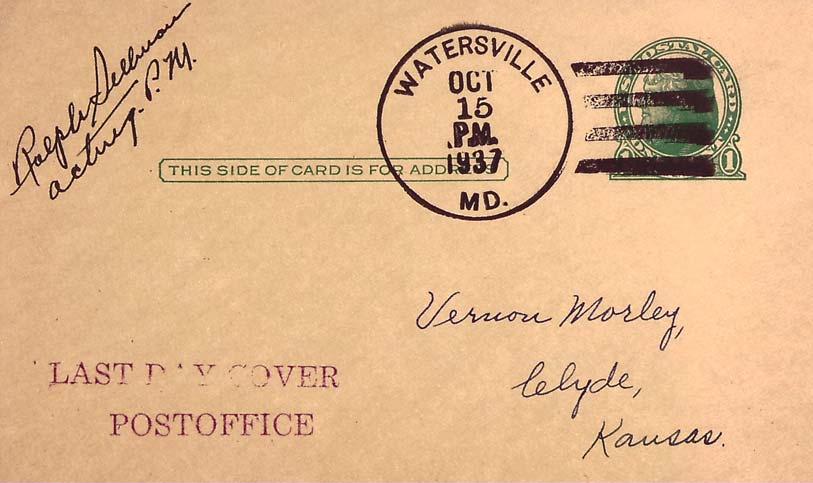 Ralph Sellman
acting. P. M.
WATERSVILLE
OCT
15
P.M.
1937
MD.
POSTAL CARD
1
THIS SIDE OF CARD IS FOR ADDRESS
Vernon Morley,
Clyde,
Kansas.
LAST DAY COVER
POSTOFFICE